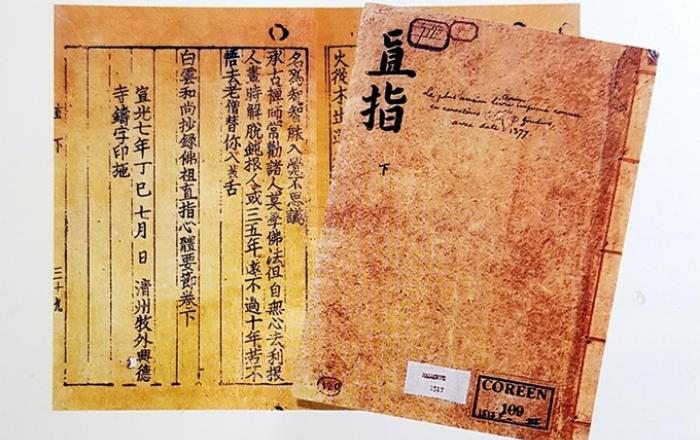 名爲智智眛入覺不思議
承古禪師常勸諸人莫學佛法但自無心去利根
人晝時解脫鈍根人或三五年遠不過十年若不
悟去老僧替你入舌
白雲和尚抄錄佛祖直指心體要節卷下
宣光七年丁巳七月 日 淸州牧外興德
寺鑄字印施
下
三十九
直指
下
Le plus ancien livre imprimé connu
en caractères fondus,
avec date 1377.
COREEN
109